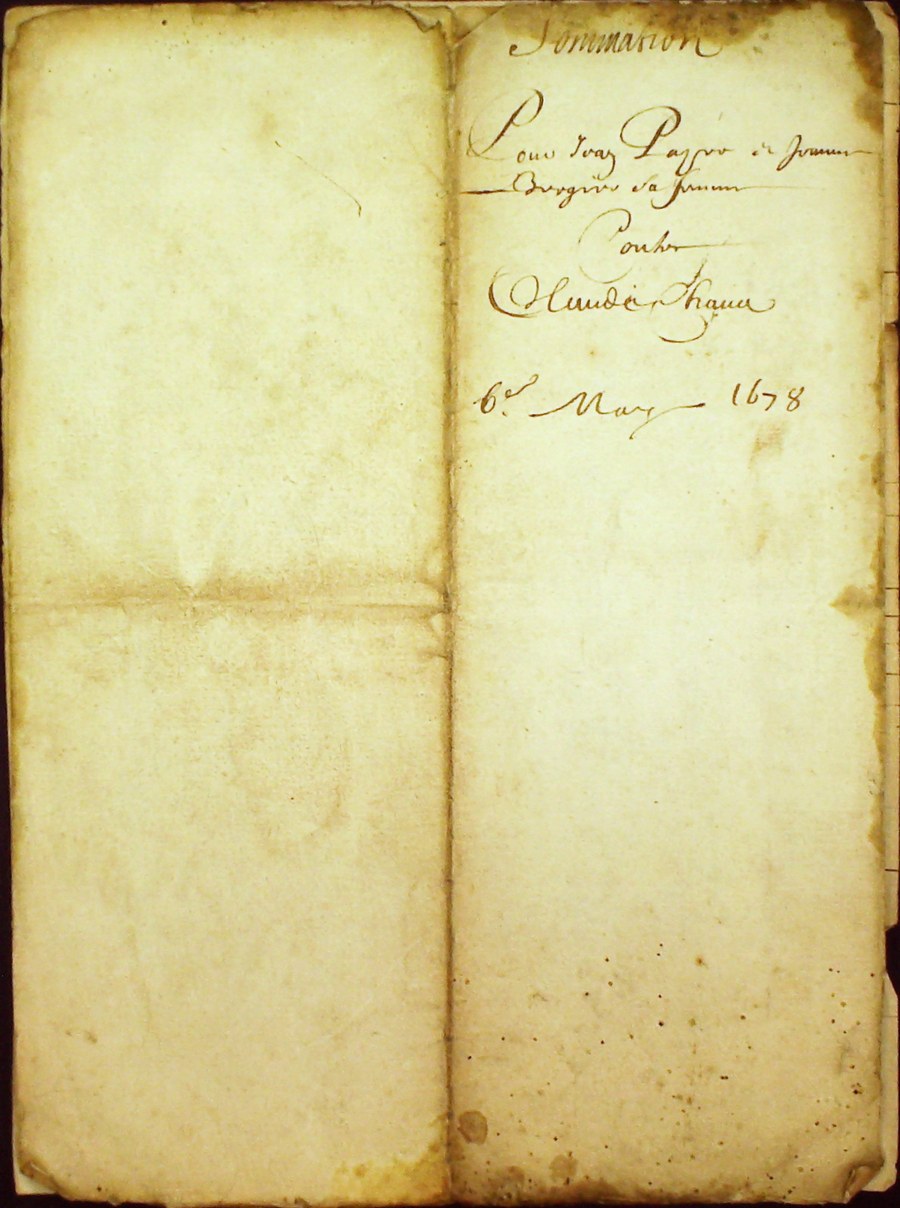 Sommation
Pour Jean Payre et Jeanne
Bergiere sa femme
Contre
Claude
6e. May 1678